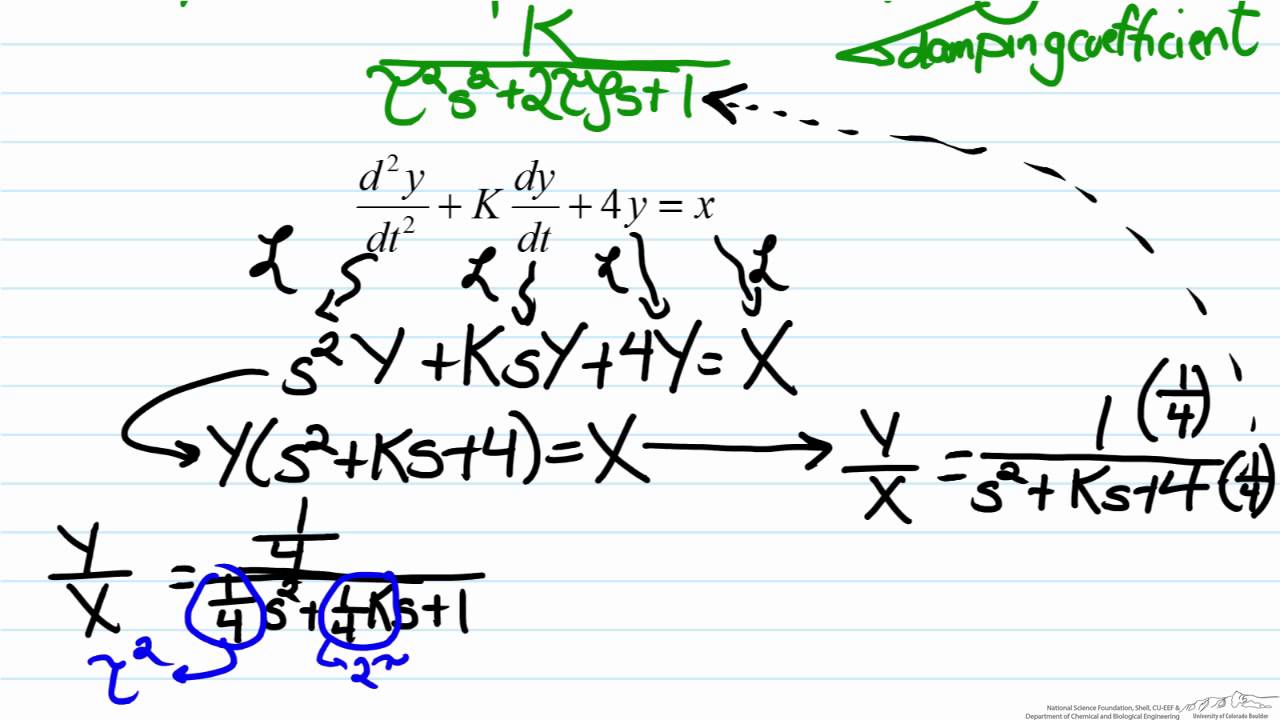 K
τ²s²+2τζs+1
damping coefficient
d²y/dt² + K dy/dt + 4y = x
ℒ ℒ ℒ ℒ
s²Y + KsY + 4Y = X
Y(s²+Ks+4) = X
Y/X = 1 (1/4) / s²+Ks+4 (1/4)
Y/X = 1/4 / 1/4 s² + 1/4 Ks + 1
τ² 2τ
National Science Foundation, Shell, CU-EEF &
Department of Chemical and Biological Engineering
University of Colorado Boulder